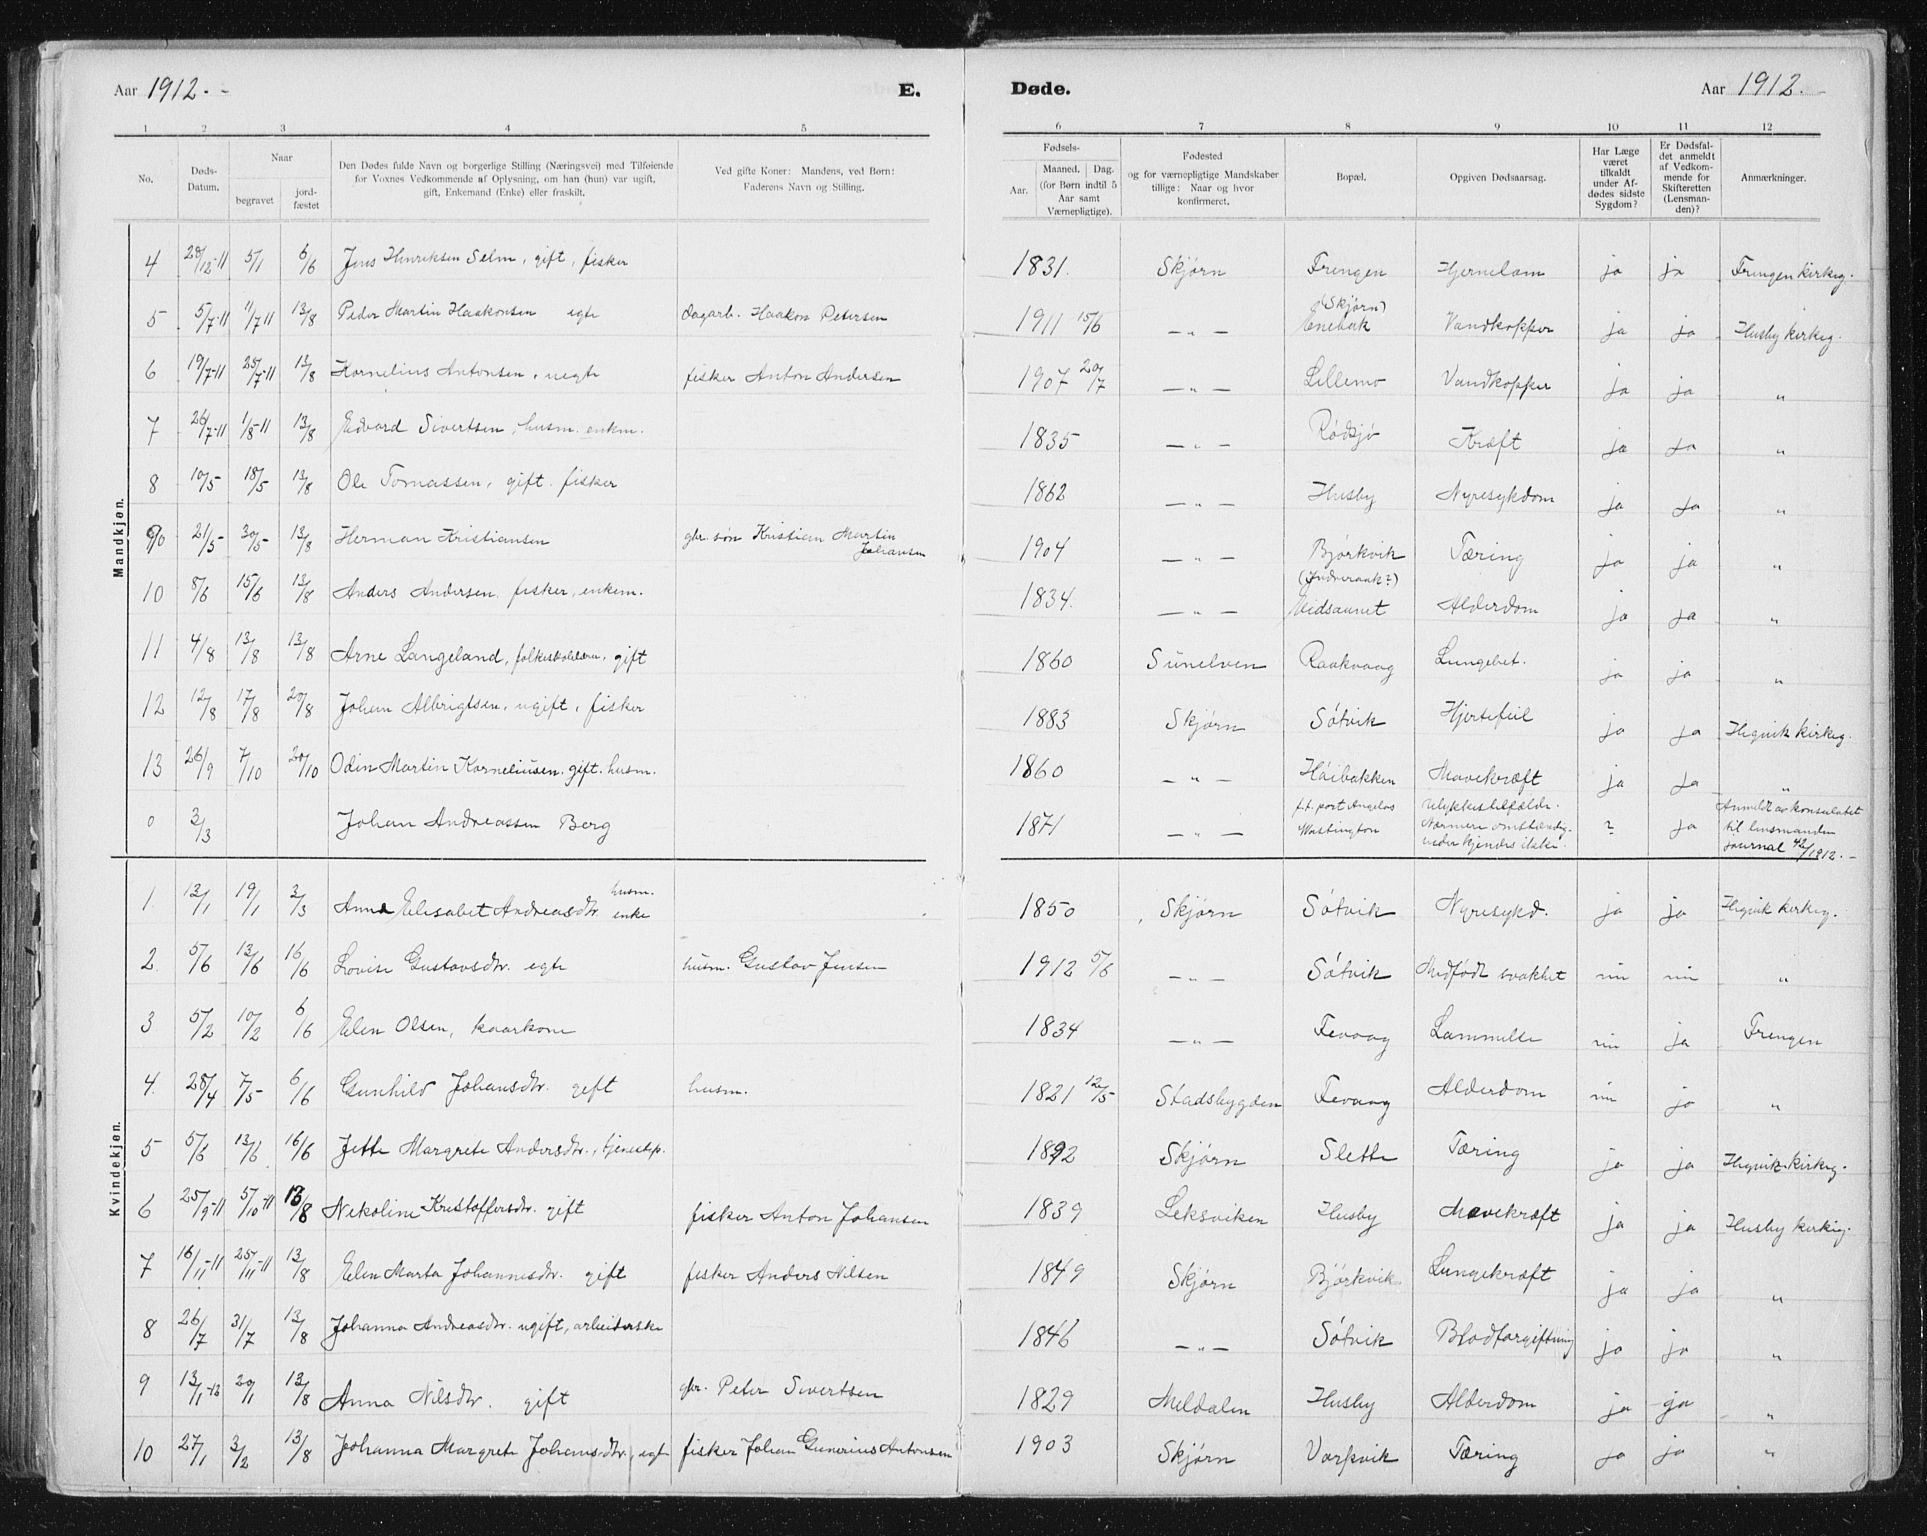 Aar 1912. - E. Døde. Aar 1912. -
1 2 3 4 5 6 7 8 9 10 11 12
No. Døds-Datum. Naar begravet jordfæstet Den Dødes fulde Navn og borgerlige Stilling (Næringsvei) med Tilføiende for Voxnes Vedkommende af Oplysning, om han (hun) var ugift, gift, Enkemand (Enke) eller fraskilt. Ved gifte Koner: Mandens, ved Børn: Faderens Navn og Stilling. Fødsels- Aar. Maaned. Dag. (for Børn indtil 5 Aar samt Værnepligtige). Fødested og for værnepligtige Mandskaber tillige: Naar og hvor konfirmeret. Bopæl. Opgiven Dødsaarsag. Har Læge været tilkaldt under Afdødes sidste Sygdom? Er Dødsfaldet anmeldt af Vedkommende for Skifteretten (Lensmanden)? Anmærkninger.
Mandkjøn.
4 28/12-11 5/1 6/6 Jens Henriksen Selm, gift, fisker 1831. Skjørn Frengen Hjernelam ja ja Frengen kirkeg.
5 5/7-11 11/7 11 13/8 Peder Martin Haakonsen egte dagarb. Haakon Petersen 1911 15/6 -„- (Skjørn) Enebak Vandkopper ja ja Husby kirkeg.
6 19/7-11 25/7-11 13/8 Kornelius Antonsen, uegte fisker Anton Andersen 1907 20/7 -„- Lillemo Vandkopper ja ja „
7 26/7-11 1/8-11 13/8 Edvard Sivertsen, husm. enkm. 1835 -„- Rødsjø Kræft ja ja „
8 10/5 18/5 13/8 Ole Tomassen, gift. fisker 1862 -„- Husby Nyresykdom ja ja „
9 21/5 30/5 13/8 Herman Kristiansen gbr. søn Kristian Martin Johansen 1904 -„- Bjørkvik Tæring ja ja „
10 8/6 15/6 13/8 Anders Andersen, fisker, enkem. 1834. -„- Eidsaunet Alderdom ja ja „
11 4/8 13/8 13/8 Arne Langeland, folkeskolelærer, gift 1860 Sunelven Raakvaag Lungebet. ja ja „
12 12/8 17/8 20/8 Johan Albrigtsen, ugift, fisker 1883 Skjørn Søtvik Hjertefeil ja ja Hegvik kirkeg.
13 26/9 7/10 20/10 Odin Martin Korneliusen. gift. husm. 1860 -„- Høibakken Mavekræft ja ja „
0 3/3 Johan Andreassen Berg 1871 -„- f.t. port Angelos Wastington Ulykkestilfælde. Nærmere omstændigheder kjendes ikke. ? ja Anmeldt av konsulatet til lensmanden journal 42/1912. -
Kvindekjøn.
1. 13/1 19/1 3/3 Anna Elisabet Andreasdtr. husm. enke 1850 Skjørn Søtvik Nyresykd. ja ja Hegvik kirkeg.
2. 5/6 13/6 16/6 Lovise Gustavsdtr. egte husm. Gustav Jensen 1912 5/6 -„- Søtvik Medfødt svakhet nei nei „
3 5/2 10/2 6/6 Elen Olsen, kaarkone 1834 -„- Fevaag Lammelse nei ja Frengen
4. 28/4 7/5 6/6 Gunhild Johansdtr. gift husm. 1821 12/5 Stadsbygden Fevaag Alderdom nei ja „
5 5/6 13/6 16/6 Jette Margrete Andersdtr., tjenestep. 1892 Skjørn Slette Tæring ja ja Hegvik kirkeg.
6 25/9-11 5/10-11 13/8 Nekoline Kristoffersdtr. gift fisker Anton Johansen 1839 Leksviken Husby Mavekræft ja ja Husby kirkeg.
7 16/11-11 25/11-11 13/8 Elen Marta Johannesdtr. gift fisker Anders Nilsen 1849 Skjørn Bjørkvik Lungekræft ja ja „
8 26/7 31/7 13/8 Johanna Andreasdtr. ugift, arbeiderske 1846 -„- Søtvik Blodforgiftning ja ja „
9 13/1-12 20/1 13/8 Anna Nilsdtr. gift gbr. Peter Sivertsen 1829 Meldalen Husby Alderdom ja ja „
10 27/1 3/2 13/8 Johanna Margrete Johansdtr., egte fisker Johan Gunerius Antonsen 1903 Skjørn Varpvik Tæring ja ja „